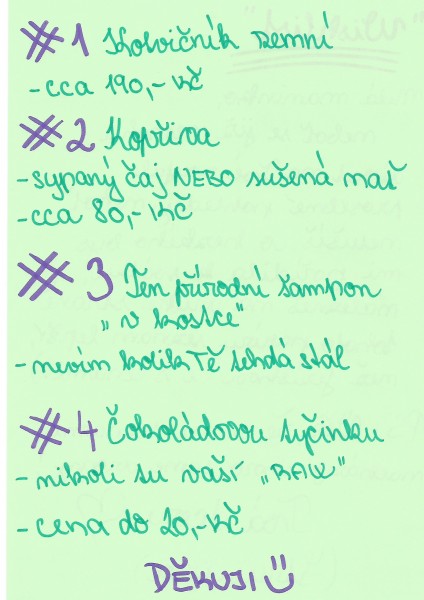 #1 Kotvičník zemní
- cca 190,- Kč
#2 Kopřiva
- sypaný čaj NEBO sušená nať
- cca 80,- Kč
#3 Ten přírodní šampon
„v kostce"
- nevím kolik Tě tehdá stál
#4 Čokoládovou tyčinku
- nikoli su vaší „RAW"
- cena do 20,- Kč
DĚKUJI